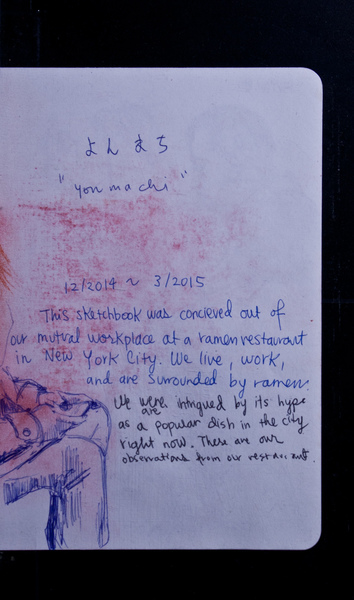 よんまち
"yon ma chi"
12/2014 ~ 3/2015
This sketchbook was concieved out of
our mutual workplace at a ramen restaurant
in New York City. We live, work,
and are surrounded by ramen.
We were intrigued by its hype
are
as a popular dish in the city
right now. There are our
observations from our restaurant.